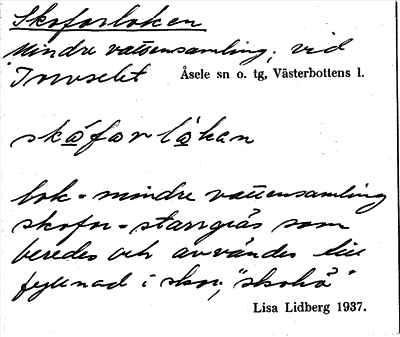 Skoforloken
Mindre vattensamling, vid
Torvselet Åsele sn o. tg, Västerbottens l.
skǫfǫrlǫkan
lok = mindre vattensamling
skofor = starrgräs som
beredes och användes till
fyllnad i skor, "skohö"
Lisa Lidberg 1937.